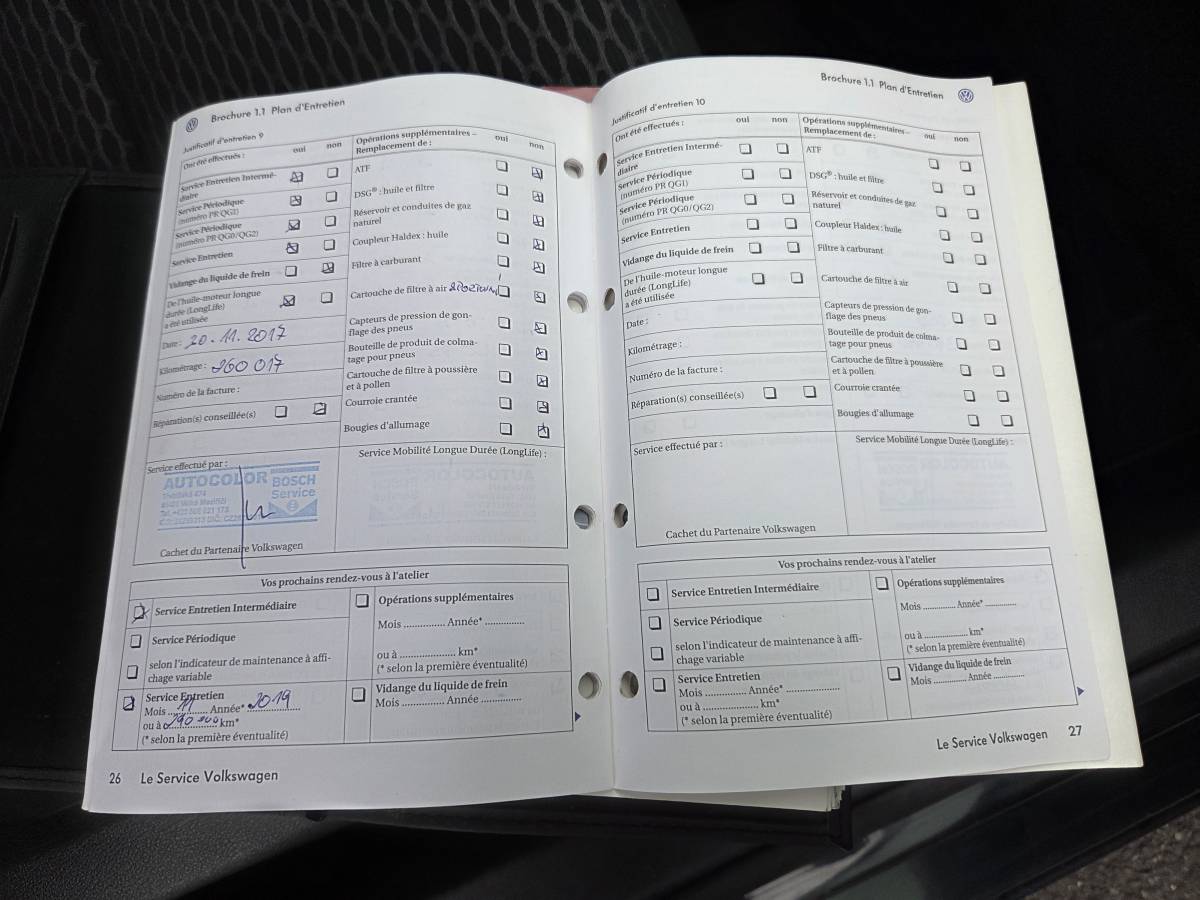 Brochure 1.1 Plan d'Entretien
Justificatif d'entretien 9
Ont été effectués : oui non
Service Entretien Intermé-
diaire
Service Périodique
(numéro PR QG1)
Service Périodique
(numéro PR QG0/QG2)
Service Entretien
Vidange du liquide de frein
De l'huile-moteur longue
durée (LongLife)
a été utilisée
Date : 20.11.2017
Kilométrage : 260 017
Numéro de la facture :
Réparation(s) conseillée(s)
Opérations supplémentaires –
Remplacement de : oui non
ATF
DSG® : huile et filtre
Réservoir et conduites de gaz
naturel
Coupleur Haldex : huile
Filtre à carburant
Cartouche de filtre à air
Capteurs de pression de gon-
flage des pneus
Bouteille de produit de colma-
tage pour pneus
Cartouche de filtre à poussière
et à pollen
Courroie crantée
Bougies d'allumage
Service effectué par :
AUTOCOLOR BOSCH
Service
Cachet du Partenaire Volkswagen
Service Mobilité Longue Durée (LongLife) :
Vos prochains rendez-vous à l'atelier
Service Entretien Intermédiaire
Service Périodique
selon l'indicateur de maintenance à affi-
chage variable
Service Entretien
Mois 11 Année* 2019
ou à 290 000 km*
(* selon la première éventualité)
Opérations supplémentaires
Mois ............... Année* ...............
ou à .................... km*
(* selon la première éventualité)
Vidange du liquide de frein
Mois .............. Année ..............
26 Le Service Volkswagen
Brochure 1.1 Plan d'Entretien
Justificatif d'entretien 10
Ont été effectués : oui non
Service Entretien Intermé-
diaire
Service Périodique
(numéro PR QG1)
Service Périodique
(numéro PR QG0/QG2)
Service Entretien
Vidange du liquide de frein
De l'huile-moteur longue
durée (LongLife)
a été utilisée
Date :
Kilométrage :
Numéro de la facture :
Réparation(s) conseillée(s)
Opérations supplémentaires –
Remplacement de : oui non
ATF
DSG® : huile et filtre
Réservoir et conduites de gaz
naturel
Coupleur Haldex : huile
Filtre à carburant
Cartouche de filtre à air
Capteurs de pression de gon-
flage des pneus
Bouteille de produit de colma-
tage pour pneus
Cartouche de filtre à poussière
et à pollen
Courroie crantée
Bougies d'allumage
Service effectué par :
Cachet du Partenaire Volkswagen
Service Mobilité Longue Durée (LongLife) :
Vos prochains rendez-vous à l'atelier
Service Entretien Intermédiaire
Service Périodique
selon l'indicateur de maintenance à affi-
chage variable
Service Entretien
Mois ............... Année* ...............
ou à .................... km*
(* selon la première éventualité)
Opérations supplémentaires
Mois ............. Année* .............
ou à .................. km*
(* selon la première éventualité)
Vidange du liquide de frein
Mois ............. Année .............
Le Service Volkswagen 27